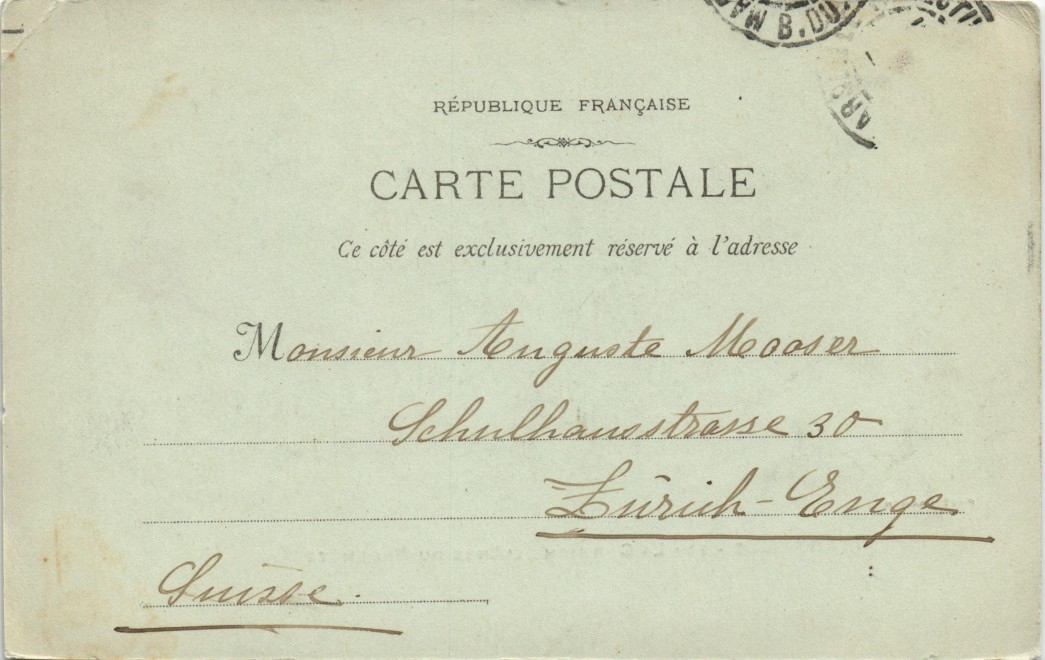 RÉPUBLIQUE FRANÇAISE
CARTE POSTALE
Ce côté est exclusivement réservé à l'adresse
Monsieur Auguste Mooser
Schulhausstrasse 30
Zürich-Enge
Suisse.
B. DU